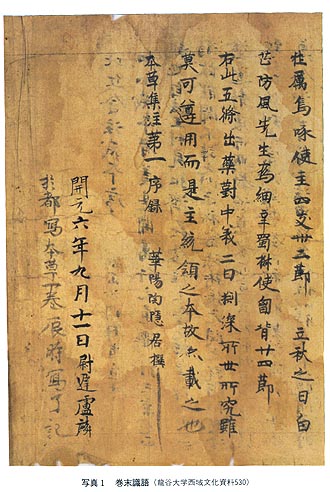 牡厲為啄使主四支卅二節　立秋之日白
芷防風先生為細辛蜀椒使匈背廿四節
右此五條出藥對中義二日捌深所世所究雖
莫可遵用而是主統領之本故亦載之也
本草集注第一　序録　華陽陶隱居撰
開元六年九月十一日尉遲盧麟
於都寫本草一卷辰時寫了記
写真1　巻末識語（龍谷大学西域文化資料530）